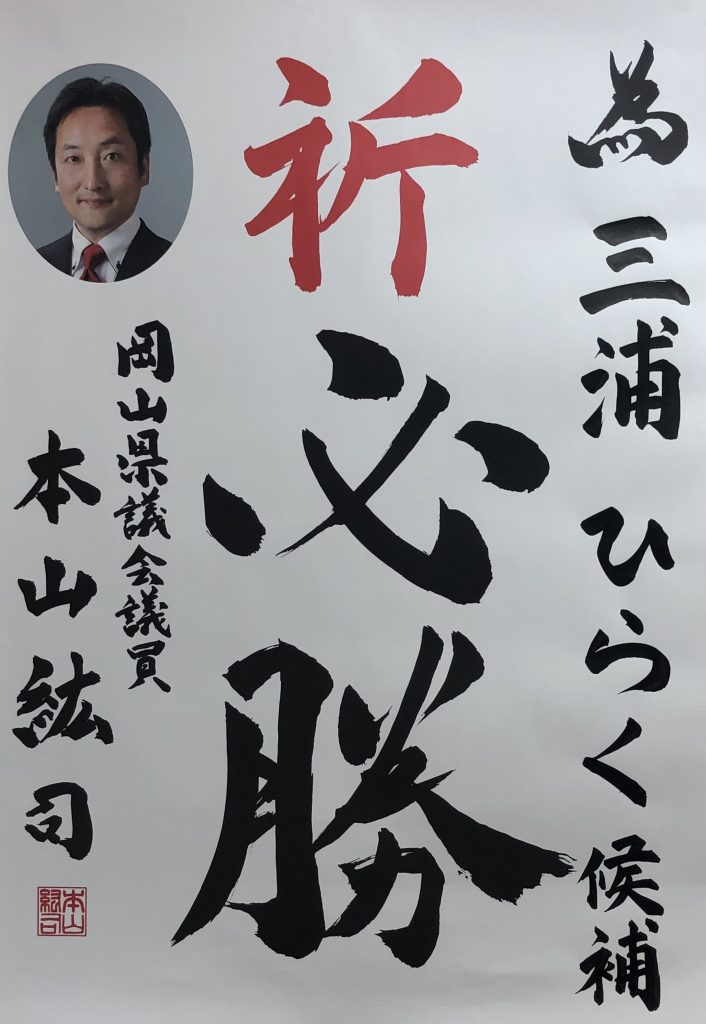 為 三浦 ひらく 候補
祈必勝
岡山県議会議員
本山紘司
本山
紘司